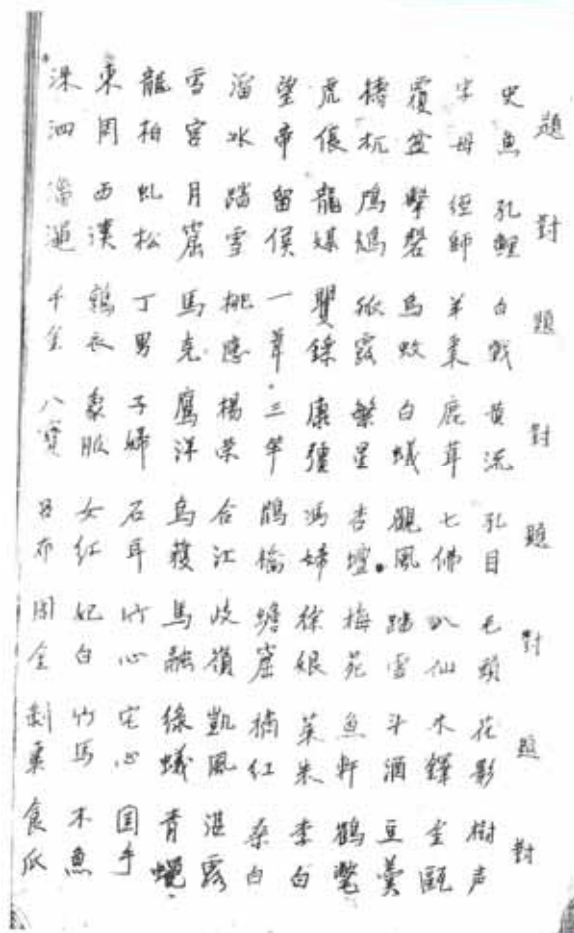 題 對 題 對 題 對 題 對
史魚 孔鯉 白戰 黄流 孔目 毛頭 花影 樹声
宋母 經師 羊棗 鹿茸 七佛 八仙 木鐸 金甌
覆盆 擊磬 烏蚊 白蟻 觀風 踏雪 斗酒 豆羹
檮杌 孤霞 繁星 杏壇 梅苑 魚軒 鶴氅
虎倀 龍媒 矍鑠 康彊 馮婦 徐娘 李白
望帝 留侯 一葦 三竿 鵲橋 蟾窟 橘紅 桑白
溜水 踏雪 桃應 楊榮 合江 岐嶺 凱風 湛露
雪宮 月窟 馬克 鷹洋 烏獲 馬融 綠蟻 青蠅
龍柏 虬松 丁男 子婦 石耳 竹心 宅心 国手
東周 西漢 鶉衣 象服 女紅 妃白 竹馬 木魚
洙泗 千金 八寶 呂布 周全 剝棗 食瓜